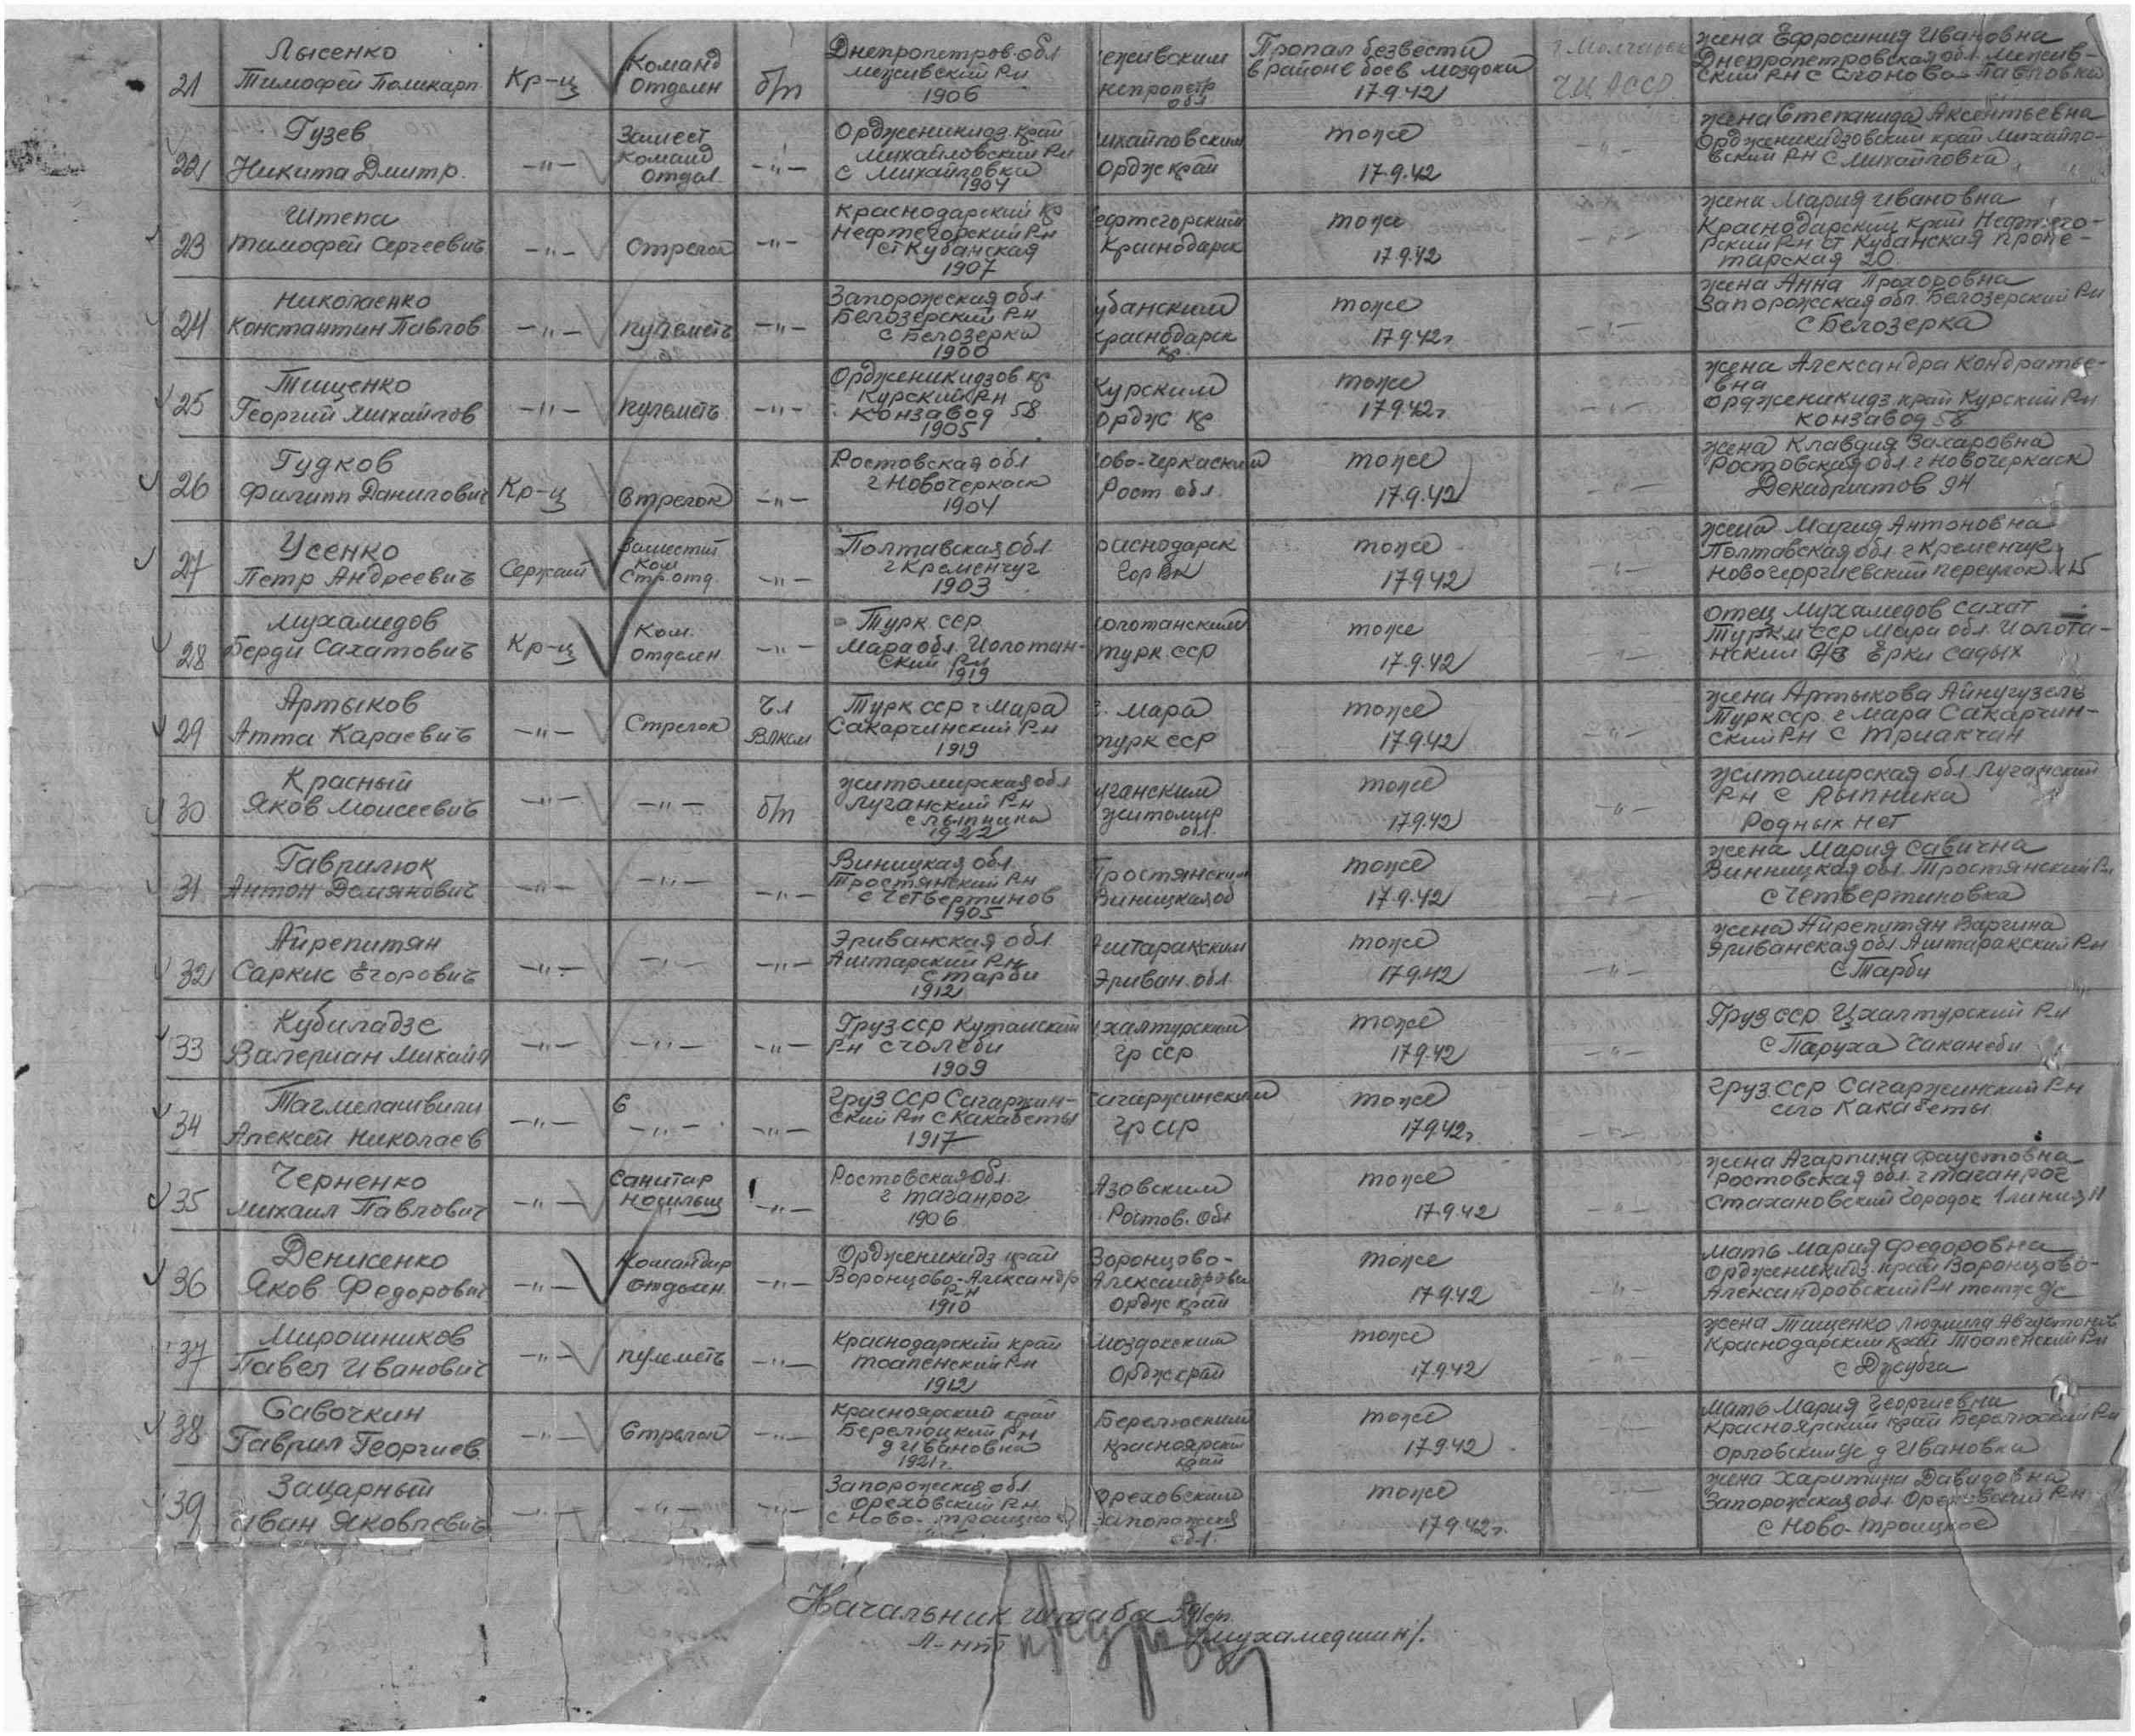 21
Лысенко
Тимофей Поликарп.
Кр-ц
Команд
Отделен
б/п
Днепропетров. обл
Межевский Рн
1906
ежевским
непропетр
обл
Пропал безвести
в районе боев Моздока
17.9.42
ЧИ АССР
жена Ефросиния Ивановна
Днепропетровская обл. Межев-
ский Рн с Слоново-Павловка
22
Гузев
Никита Дмитр.
-"-
Замест
Команд
отдел.
-"-
Ордженикидз. край
Михайловский Рн
с Михайловка
1904
ихайловским
Ордж край
тоже
17.9.42
-"-
жена Степанида Аксентьевна
Ордженикидзовский край Михайло-
вский Рн с Михайловка
23
Штепа
Тимофей Сергеевич
-"-
Стрелок
-"-
Краснодарский кр
Нефтегорский Рн
ст Кубанская
1907
ефтегорским
Краснодарск
тоже
17.9.42
-"-
жена Мария Ивановна
Краснодарский край Нефтего-
рский Рн ст Кубанская проле-
тарская 20
24
Николаенко
Константин Павлов
-"-
пулеметч
-"-
Запорожская обл
Белозерский Рн
с Белозерка
1900
убанским
Краснодарск
кр
тоже
17.9.42г
-"-
жена Анна Прохоровна
Запорожская обл. Белозерский Рн
с Белозерка
25
Тищенко
Георгий Михайлов
-"-
пулеметч.
-"-
Ордженикидзов. кр.
Курский Рн
Конзавод 58
1905
Курским
Ордж кр
тоже
17.9.42г
-"-
жена Александра Кондратье-
вна
Ордженикидз. край Курский Рн
конзавод 58
26
Гудков
Филипп Данилович
Кр-ц
Стрелок
-"-
Ростовская обл
г Новочеркаск
1904
ово-Черкаским
Рост. обл.
тоже
17.9.42
-"-
жена Клавдия Захаровна
Ростовская обл. г Новочеркаск
Декабристов 94
27
Усенко
Петр Андреевич
Сержант
Заместит
Ком
Стр. отд.
-"-
Полтавская обл.
г Кременчуг
1903
раснодарск
Гор ВК
тоже
17.9.42
-"-
жена Мария Антоновна
Полтавская обл. г Кременчуг
Новогеоргиевский переулок 15
28
Мухамедов
Берди Сахатович
Кр-ц
Ком.
отделен
-"-
Турк ССР
Мара обл. Иолотан-
ский Рн
1919
олотанским
Турк. ССР
тоже
17.9.42
-"-
отец Мухамедов Сахат
Туркм ССР Мара обл. Иолота-
нский С/З Ерки Садых
29
Артыков
Атта Караевич
-"-
Стрелок
Чл
ВЛКСМ
Турк ССР г Мара
Сакарчинский Рн
1919
г. Мара
Турк ССР
тоже
17.9.42
-"-
жена Артыкова Айнугузель
Турк ССР. г Мара Сакарчин-
ский Рн с Триакчан
30
Красный
Яков Моисеевич
-"-
-"-
б/п
Житомирская обл
Луганский Рн
1922
уганским
Житомир
обл.
тоже
17.9.42
-"-
Житомирская обл Луганский
Рн с Рыпника
Родных нет
31
Гаврилюк
Антон Демянович
-"-
-"-
-"-
Виницкая обл.
Тростянский Рн
с Четвертинов
1905
Тростянским
Виницкая об
тоже
17.9.42
-"-
жена Мария Савична
Винницкая обл. Тростянский Рн
с Четвертиновка
32
Айрепитян
Саркис Егорович
-"-
-"-
-"-
Эриванская обл.
Аштарский Рн
с Тарби
1912
Аштаракским
Эриван. обл.
тоже
17.9.42
-"-
жена Айрепитян Варгина
Эриванская обл. Аштаракский Рн
с Тарби
33
Кубиладзе
Валериан Михайл
-"-
-"-
-"-
Груз ССР Кутаиский
Рн с Чолеби
1909
халтурским
гр ССР
тоже
17.9.42
-"-
Груз ССР Цхалтурский Рн
с Паруха Чаканеби
34
Тагмелашвили
Алексей Николаев
-"-
6
-"-
-"-
Груз ССР Сагаржин-
ский Рн с Какабеты
1917
Сагаржинским
гр ССР
тоже
17.9.42г.
-"-
Груз. ССР Сагаржинский Рн
село Какабеты
35
Черненко
Михаил Павлович
-"-
Санитар
Носильщ
-"-
Ростовская обл.
г Таганрог
1906
Азовским
Ростов. обл
тоже
17.9.42
-"-
жена Агарпина Фаустовна
Ростовская обл. г Таганрог
Стахановский городок 1 линия 11
36
Денисенко
Яков Федорович
-"-
Командир
Отделен.
-"-
Ордженикидз край
Воронцово-Александр
Р-н
1910
Воронцово-
Александровск
Ордж край
тоже
17.9.42
-"-
мать Мария Федоровна
Ордженикидз. край Воронцово-
Александровский Рн
37
Мирошников
Павел Иванович
-"-
пулеметч
-"-
Краснодарский край
Тоапенский Рн
1912
Моздокским
Ордж край
тоже
17.9.42
-"-
жена Тищенко Людмила Августонов
Краснодарский край Тоапенский Рн
с Джубга
38
Савочкин
Гаврил Георгиев.
-"-
Стрелок
-"-
Красноярский край
Берелюцкий Рн
д Ивановка
1921г.
Берелюским
Красноярский
край
тоже
17.9.42
-"-
мать Мария Георгиевна
Красноярский край Берелюский Рн
Орловский с/с д Ивановка
39
Зацарный
Иван Яковлевич
-"-
-"-
-"-
Запорожская обл
Ореховский Рн.
с Ново-Троицкое
Ореховским
Запорожская
обл.
тоже
17.9.42г.
-"-
жена Харитина Давидовна
Запорожская обл. Ореховский Рн
с Ново-Троицкое
Начальник штаба
Л-нт
/Мухамедшин/.